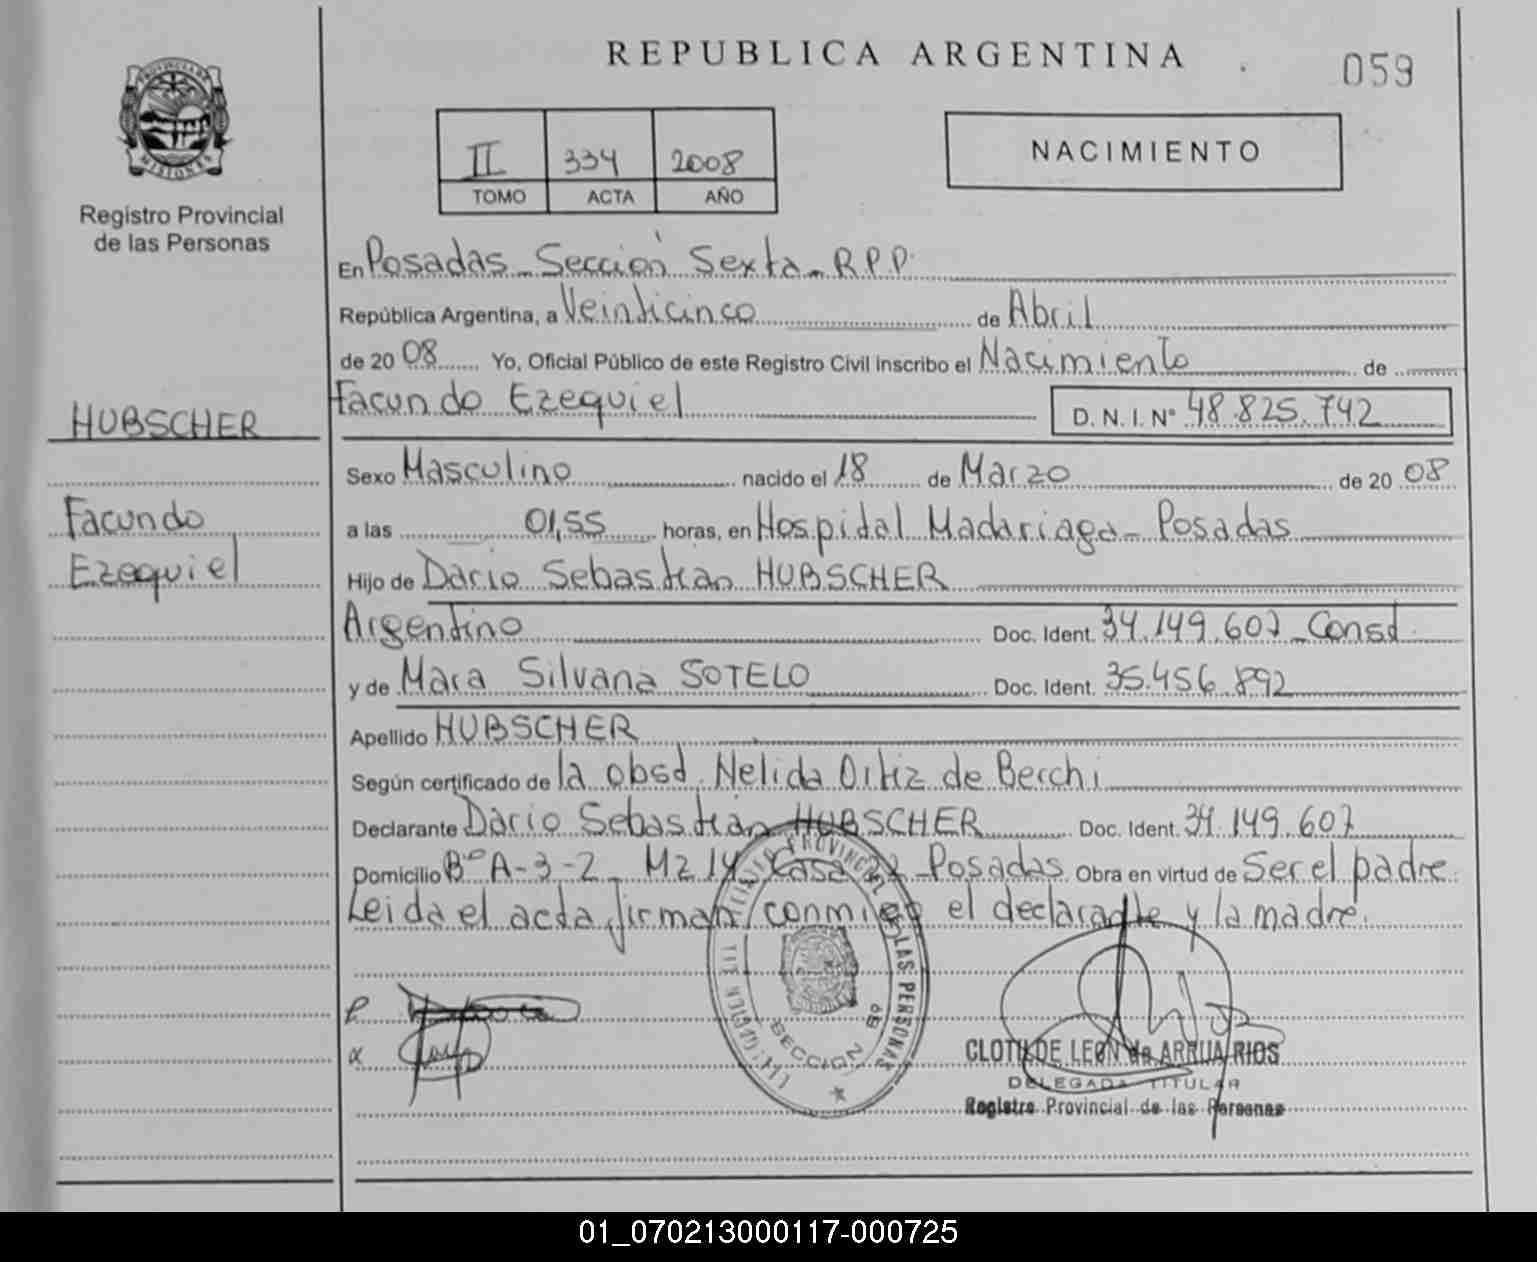 REPUBLICA ARGENTINA
059
PROVINCIA DE
MISIONES
Registro Provincial
de las Personas
II 334 2008
TOMO ACTA AÑO
NACIMIENTO
En Posadas - Sección Sexta - R.P.P.
República Argentina, a Veinticinco de Abril
de 20 08 Yo, Oficial Público de este Registro Civil inscribo el Nacimiento de
Facundo Ezequiel D. N. I. N° 48.825.742
HUBSCHER
Facundo
Ezequiel
Sexo Masculino nacido el 18 de Marzo de 20 08
a las 01,55 horas, en Hospital Madariaga - Posadas
Hijo de Dario Sebastián HUBSCHER
Argentino Doc. Ident. 34.149.607 - Const.
y de Mara Silvana SOTELO Doc. Ident. 35.456.892
Apellido HUBSCHER
Según certificado de la obst. Nelida Ortiz de Berchi
Declarante Dario Sebastián HUBSCHER Doc. Ident. 34.149.607
Domicilio B° A-3-2 - Mz 14 Casa 22 - Posadas Obra en virtud de Ser el padre
Leida el acta, firman conmigo el declarante y la madre.
PROVINCIAL DE LAS PERSONAS
SECCION 6º
CLOTILDE LEON de ARRUA RIOS
DELEGADA TITULAR
Registro Provincial de las Personas
01_070213000117-000725